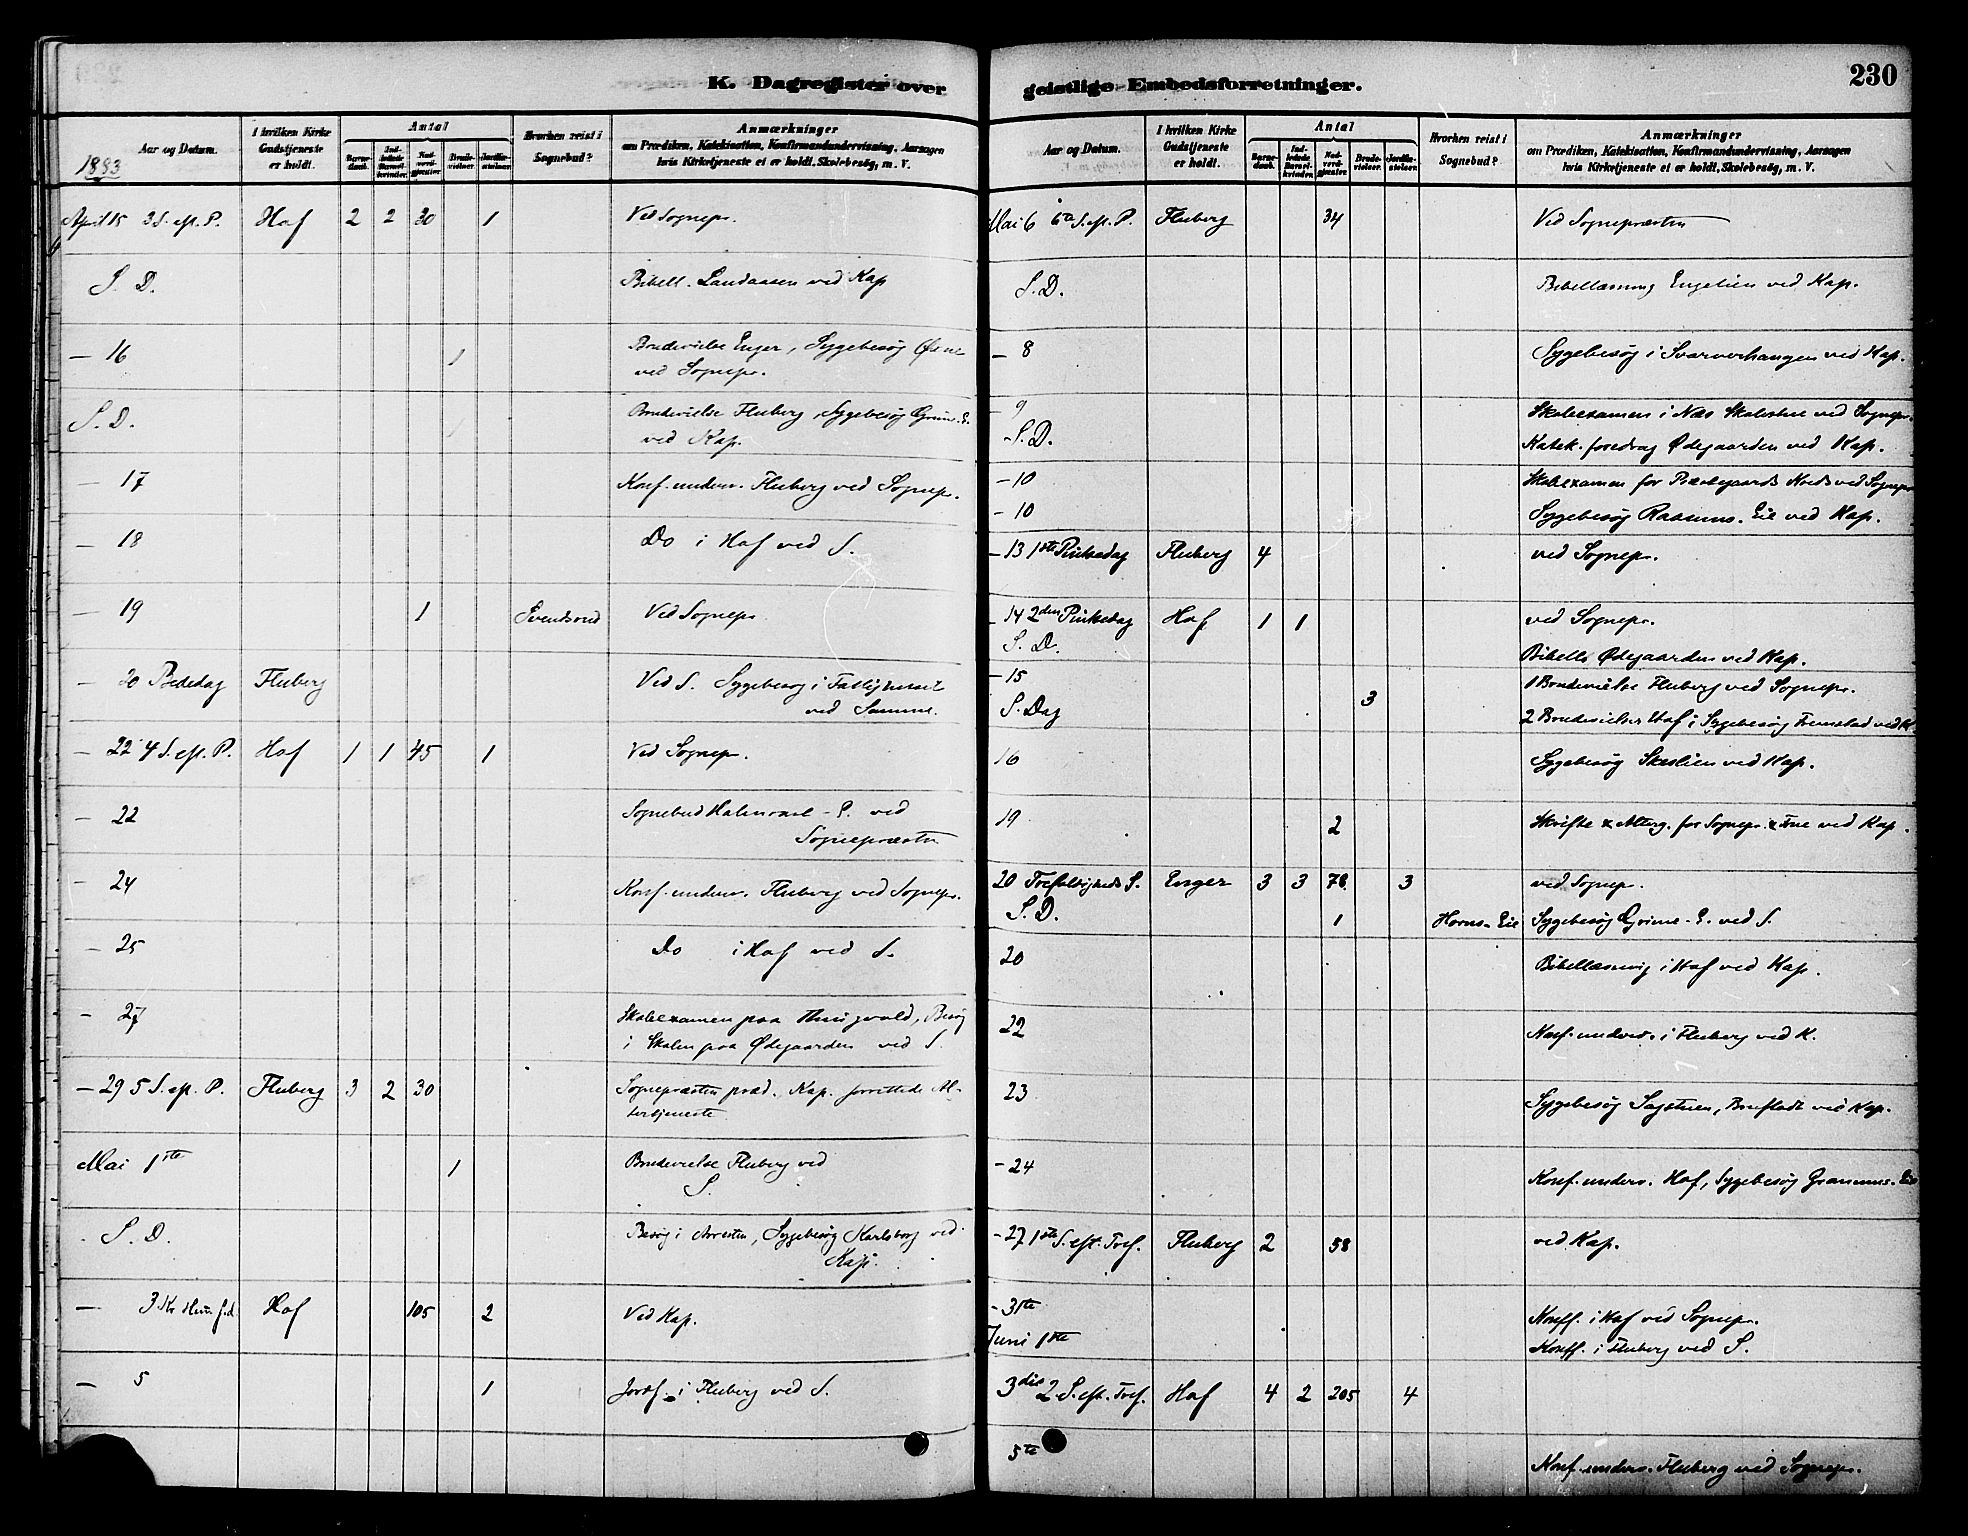 K. Dagregister over
Aar og Datum.
1883
I hvilken Kirke Gudstjeneste er holdt.
Antal
Hvorhen reist i Sognebud?
Anmærkninger
om Prædiken, Katekisation, Konfirmandundervisning, Aarsagen
hvis Kirketjeneste ei er holdt, Skolebesøg, m. V.
April 15 3 S. eft. P. Hof 2 2 30 1 Ved Sognepr.
S. D. Bibell. Landaasen ved Kap
— 16 1 Brudevielse Enger, Sygebesøg
ved Sognepr.
S. D. Brudevielse Fluberg, Sygebesøg Grime. E.
ved Kap.
— 17 Konf. underv. Fluberg ved Sognepr.
— 18 Do i Hof ved S.
— 19 1 Svendsrud Ved Sognepr
— 20 Bededag Fluberg Ved S. Sygebesøg i Fattighuset
ved Samme.
— 22 4 S. eft. P. Hof 1 1 45 1 Ved Sognepr.
— 22 Sognebud E. ved
Sognepræsten
— 24 Konf. underv. Fluberg ved Sognepr.
— 25 Do i Hof ved S.
— 27 Skolexamen paa Thingvold, Besøg
i Skolen paa Ødegaarden ved S.
— 29 5 S. eft. P. Fluberg 3 2 30 Sognepræsten præd. Kap. forrettede Al-
tertjeneste
Mai 1ste 1 Brudevielse Fluberg ved
S.
S. D. Besøg i Arresten, Sygebesøg Karlsborg ved
Kap.
— 3 Kr. Him. f. d. Hof 105 2 Ved Kap.
— 5 1 Jordf. i Fluberg ved S.
geistlige Embedsforretninger.
230
Aar og Datum.
I hvilken Kirke Gudstjeneste er holdt.
Antal
Hvorhen reist i Sognebud?
Anmærkninger
om Prædiken, Katekisation, Konfirmandundervisning, Aarsagen
hvis Kirketjeneste ei er holdt, Skolebesøg, m. V.
Mai 6 6te S. eft. P. Fluberg 34 Ved Sognepræsten
S. D. Bibellæsning Engelien ved Kap.
— 8 Sygebesøg i Svarverhaugen ved Kap.
— 9 Skolexamen i Næs Skolestue ved Sognepr.
S. D. Katek. foredrag Ødegaarden ved Kap.
— 10 Skolexamen for Præstegaards Kreds ved Sognepr
— 10 Sygebesøg Eie ved Kap.
— 13 1ste Pintsedag Fluberg 4 ved Sognepr.
— 14 2den Pintsedag Hof 1 1 ved Sognepr.
S. D. Bibell. Ødegaarden ved Kap.
— 15 1 Brudevielse Fluberg ved Sognepr.
S. Dag 3 2 Brudevielser Hof; Sygebesøg ved K.
16 Sygebesøg ved Kap.
19 2 Skrifte & Alterg. for Sognepr. & Frue ved Kap.
20 Trefoldigheds S. Enger 3 3 78 3 ved Sognep.
S. D. 1 Horns-Eie Sygebesøg Grime-E. ved S.
20 Bibellæsning i Hof ved Kap.
22 Konf. underv. i Fluberg ved K.
23 Sygebesøg Sagstuen, ved Kap.
— 24 Konf. underv. Hof, Sygebesøg Eie
— 27 1ste S. eft. Tref. Fluberg 2 58 ved Kap.
— 31te Konff. i Hof ved Sognepr.
Juni 1ste Konff. i Fluberg ved S.
3die 2 S. eft. Tref. Hof 4 2 205 4
5te Konf. underv. Fluberg ved Sognepr.